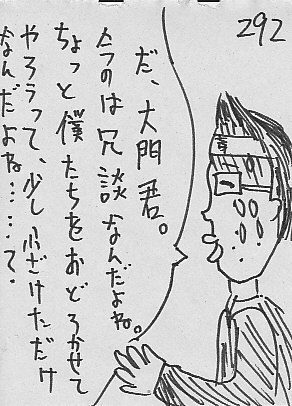 292
だ、大門君。
今のは冗談なんだよね。
ちょっと僕たちをおどろかせて
やろうって、少しふざけただけ
なんだよね……て.